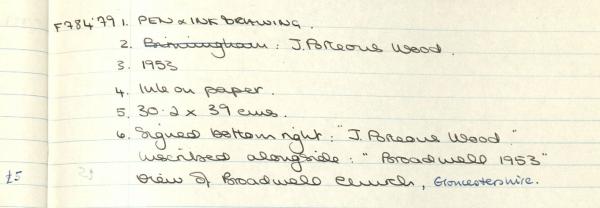 F784'79 1. PEN & INK DRAWING.
2. Birmingham: J. Porteous Wood.
3. 1953
4. Ink on paper.
5. 30.2 x 39 cms.
6. Signed bottom right: "J. Poreous Wood."
inscribed alongside: "Broadwell 1953"
£5 View of Broadwell church, Gloucestershire.